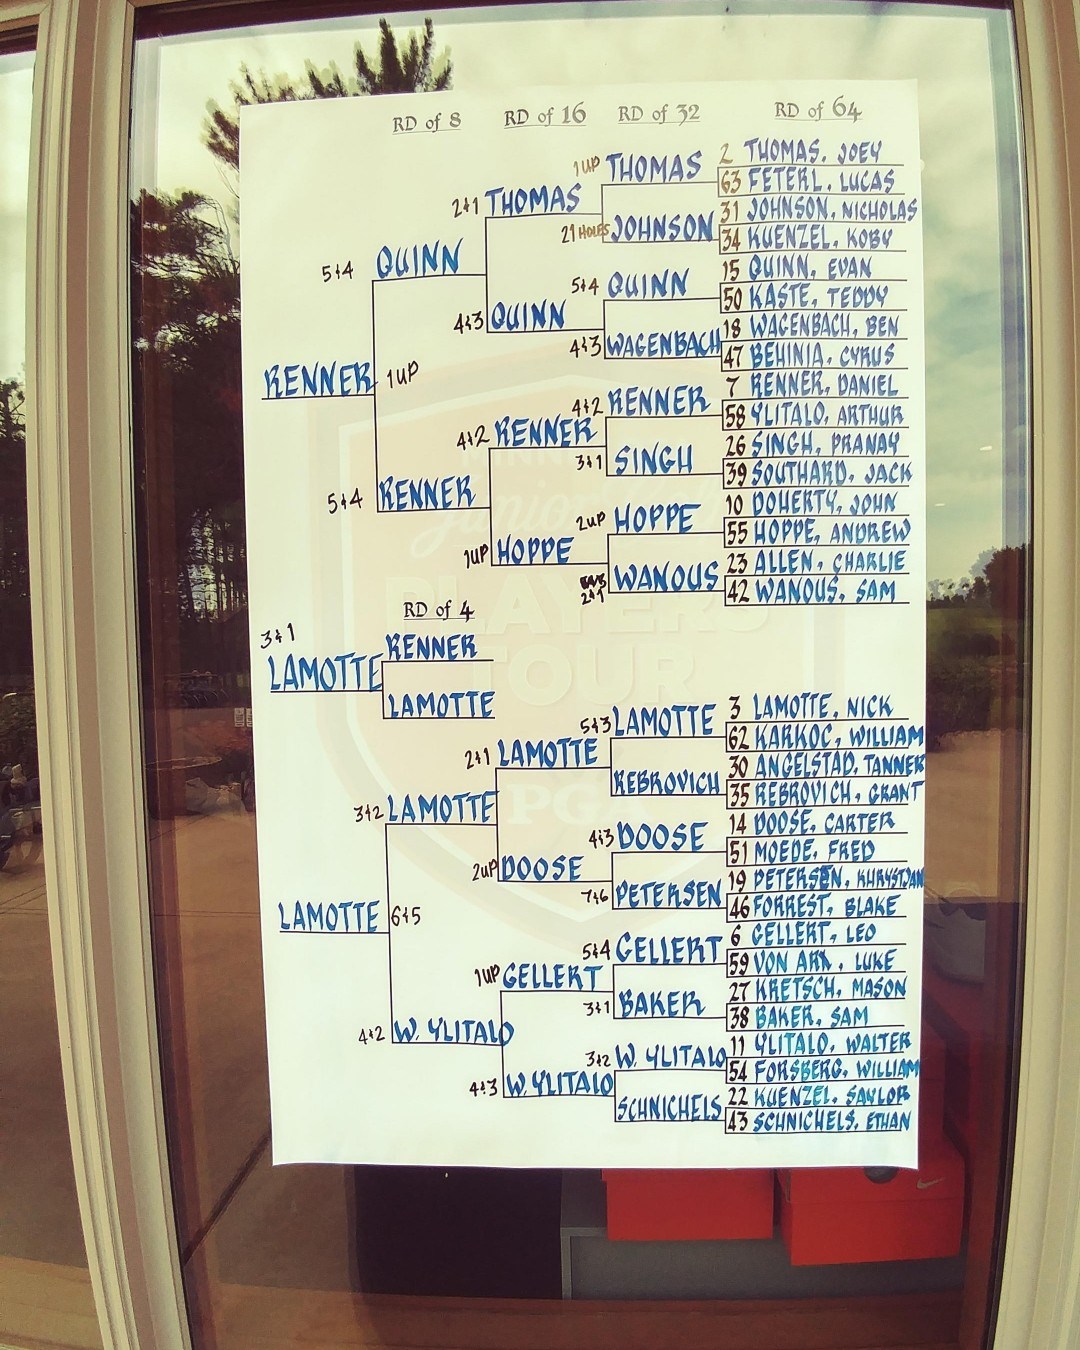 RD of 8 RD of 16 RD of 32 RD of 64
1UP THOMAS 2 THOMAS, JOEY
63 FETERL, LUCAS
2&1 THOMAS
31 JOHNSON, NICHOLAS
21 HOLES JOHNSON 34 KUENZEL, KOBY
5&4 QUINN
15 QUINN, EVAN
5&4 QUINN 50 KASTE, TEDDY
4&3 QUINN
18 WAGENBACH, BEN
4&3 WAGENBACH 47 BEHINIA, CYRUS
RENNER 1UP
7 RENNER, DANIEL
4&2 RENNER 58 YLITALO, ARTHUR
4&2 RENNER
26 SINGH, PRANAY
3&1 SINGH 39 SOUTHARD, JACK
5&4 RENNER
10 DOHERTY, JOHN
2UP HOPPE 55 HOPPE, ANDREW
1UP HOPPE
23 ALLEN, CHARLIE
2&1 WANOUS 42 WANOUS, SAM
RD of 4
3&1 RENNER
LAMOTTE
LAMOTTE
5&3 LAMOTTE 3 LAMOTTE, NICK
62 KARKOC, WILLIAM
2&1 LAMOTTE
30 ANGELSTAD, TANNER
REBROVICH 35 REBROVICH, GRANT
3&2 LAMOTTE
14 DOOSE, CARTER
4&3 DOOSE 51 MOEDE, FRED
2UP DOOSE
19 PETERSEN, KHRYSTJAN
7&6 PETERSEN 46 FORREST, BLAKE
LAMOTTE 6&5
6 GELLERT, LEO
5&4 GELLERT 59 VON ARX, LUKE
1UP GELLERT
27 KRETSCH, MASON
3&1 BAKER 38 BAKER, SAM
4&2 W. YLITALO
11 YLITALO, WALTER
3&2 W. YLITALO 54 FORSBERG, WILLIAM
4&3 W. YLITALO
22 KUENZEL, SAYLOR
SCHNICHELS 43 SCHNICHELS, ETHAN
PLAYERS
TOUR
PGA